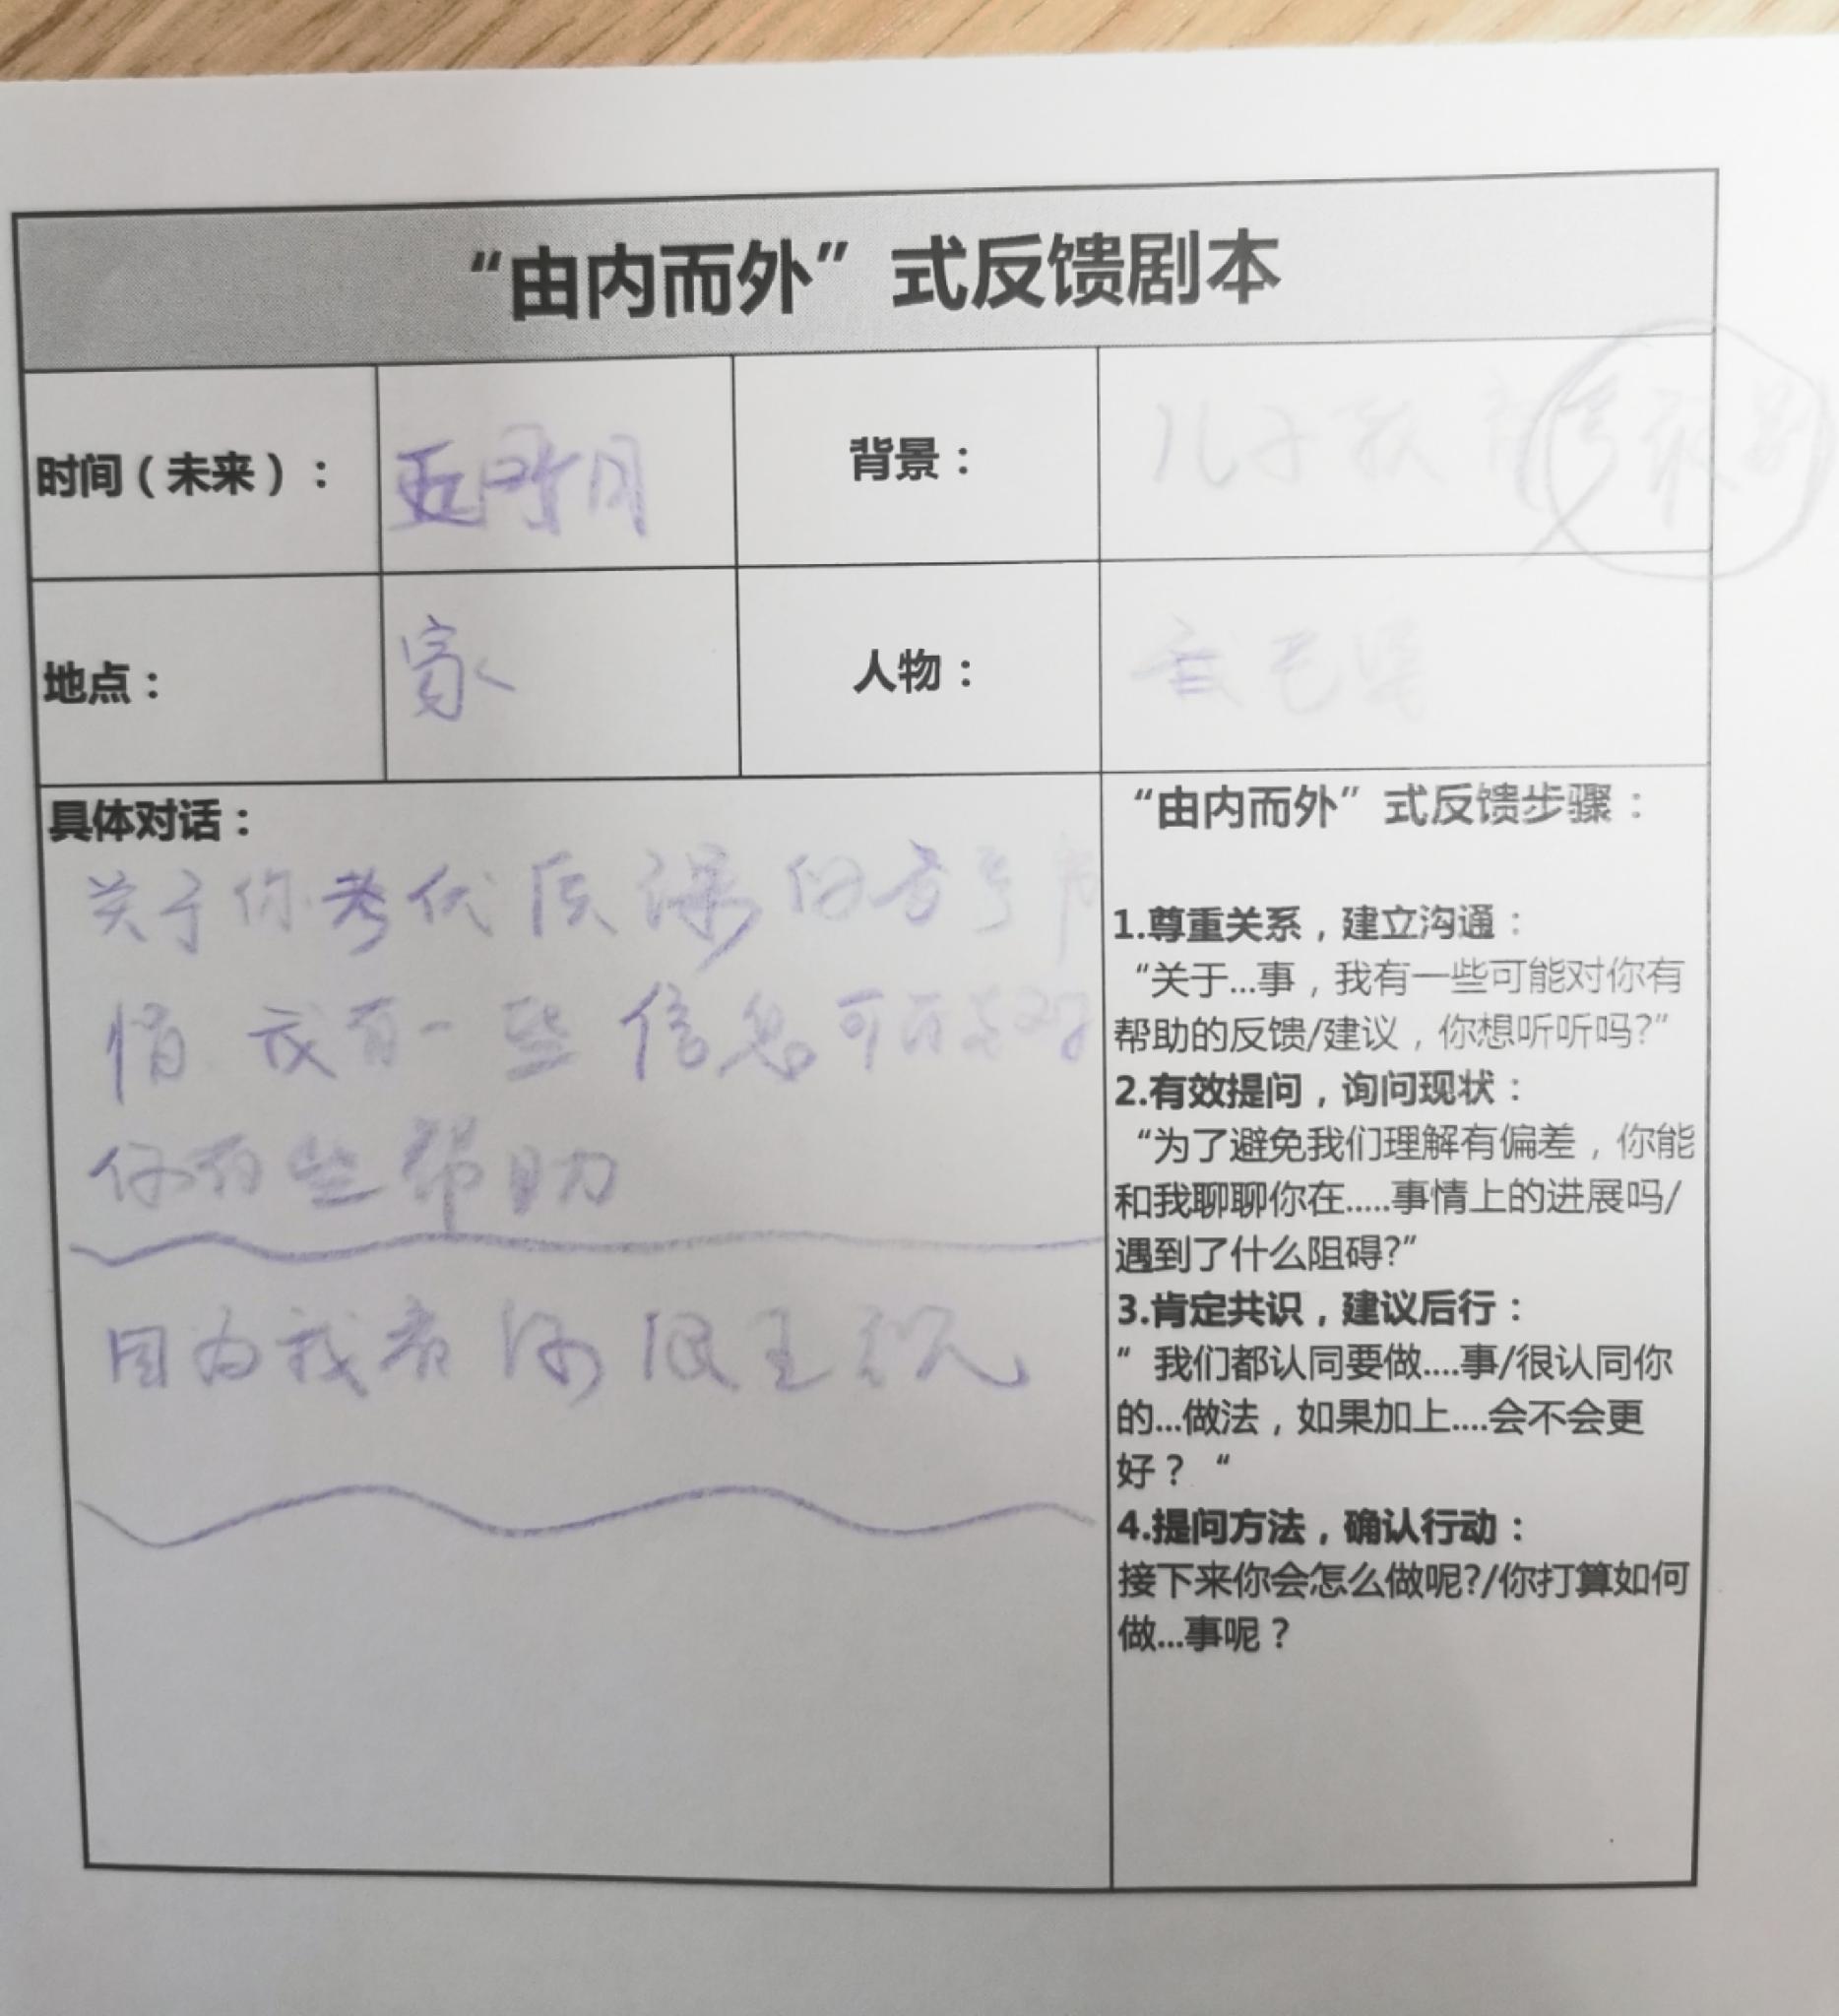 “由内而外”式反馈剧本
时间（未来）： 月 背景： 儿子
地点： 家 人物：
具体对话：
关于你考
情 我有一些信息可
你有些帮助
因为我看你很
“由内而外”式反馈步骤：
1.尊重关系，建立沟通：
“关于...事，我有一些可能对你有
帮助的反馈/建议，你想听听吗?”
2.有效提问，询问现状：
“为了避免我们理解有偏差，你能
和我聊聊你在.....事情上的进展吗/
遇到了什么阻碍?”
3.肯定共识，建议后行：
“ 我们都认同要做....事/很认同你
的...做法，如果加上....会不会更
好？ “
4.提问方法，确认行动：
接下来你会怎么做呢?/你打算如何
做...事呢？